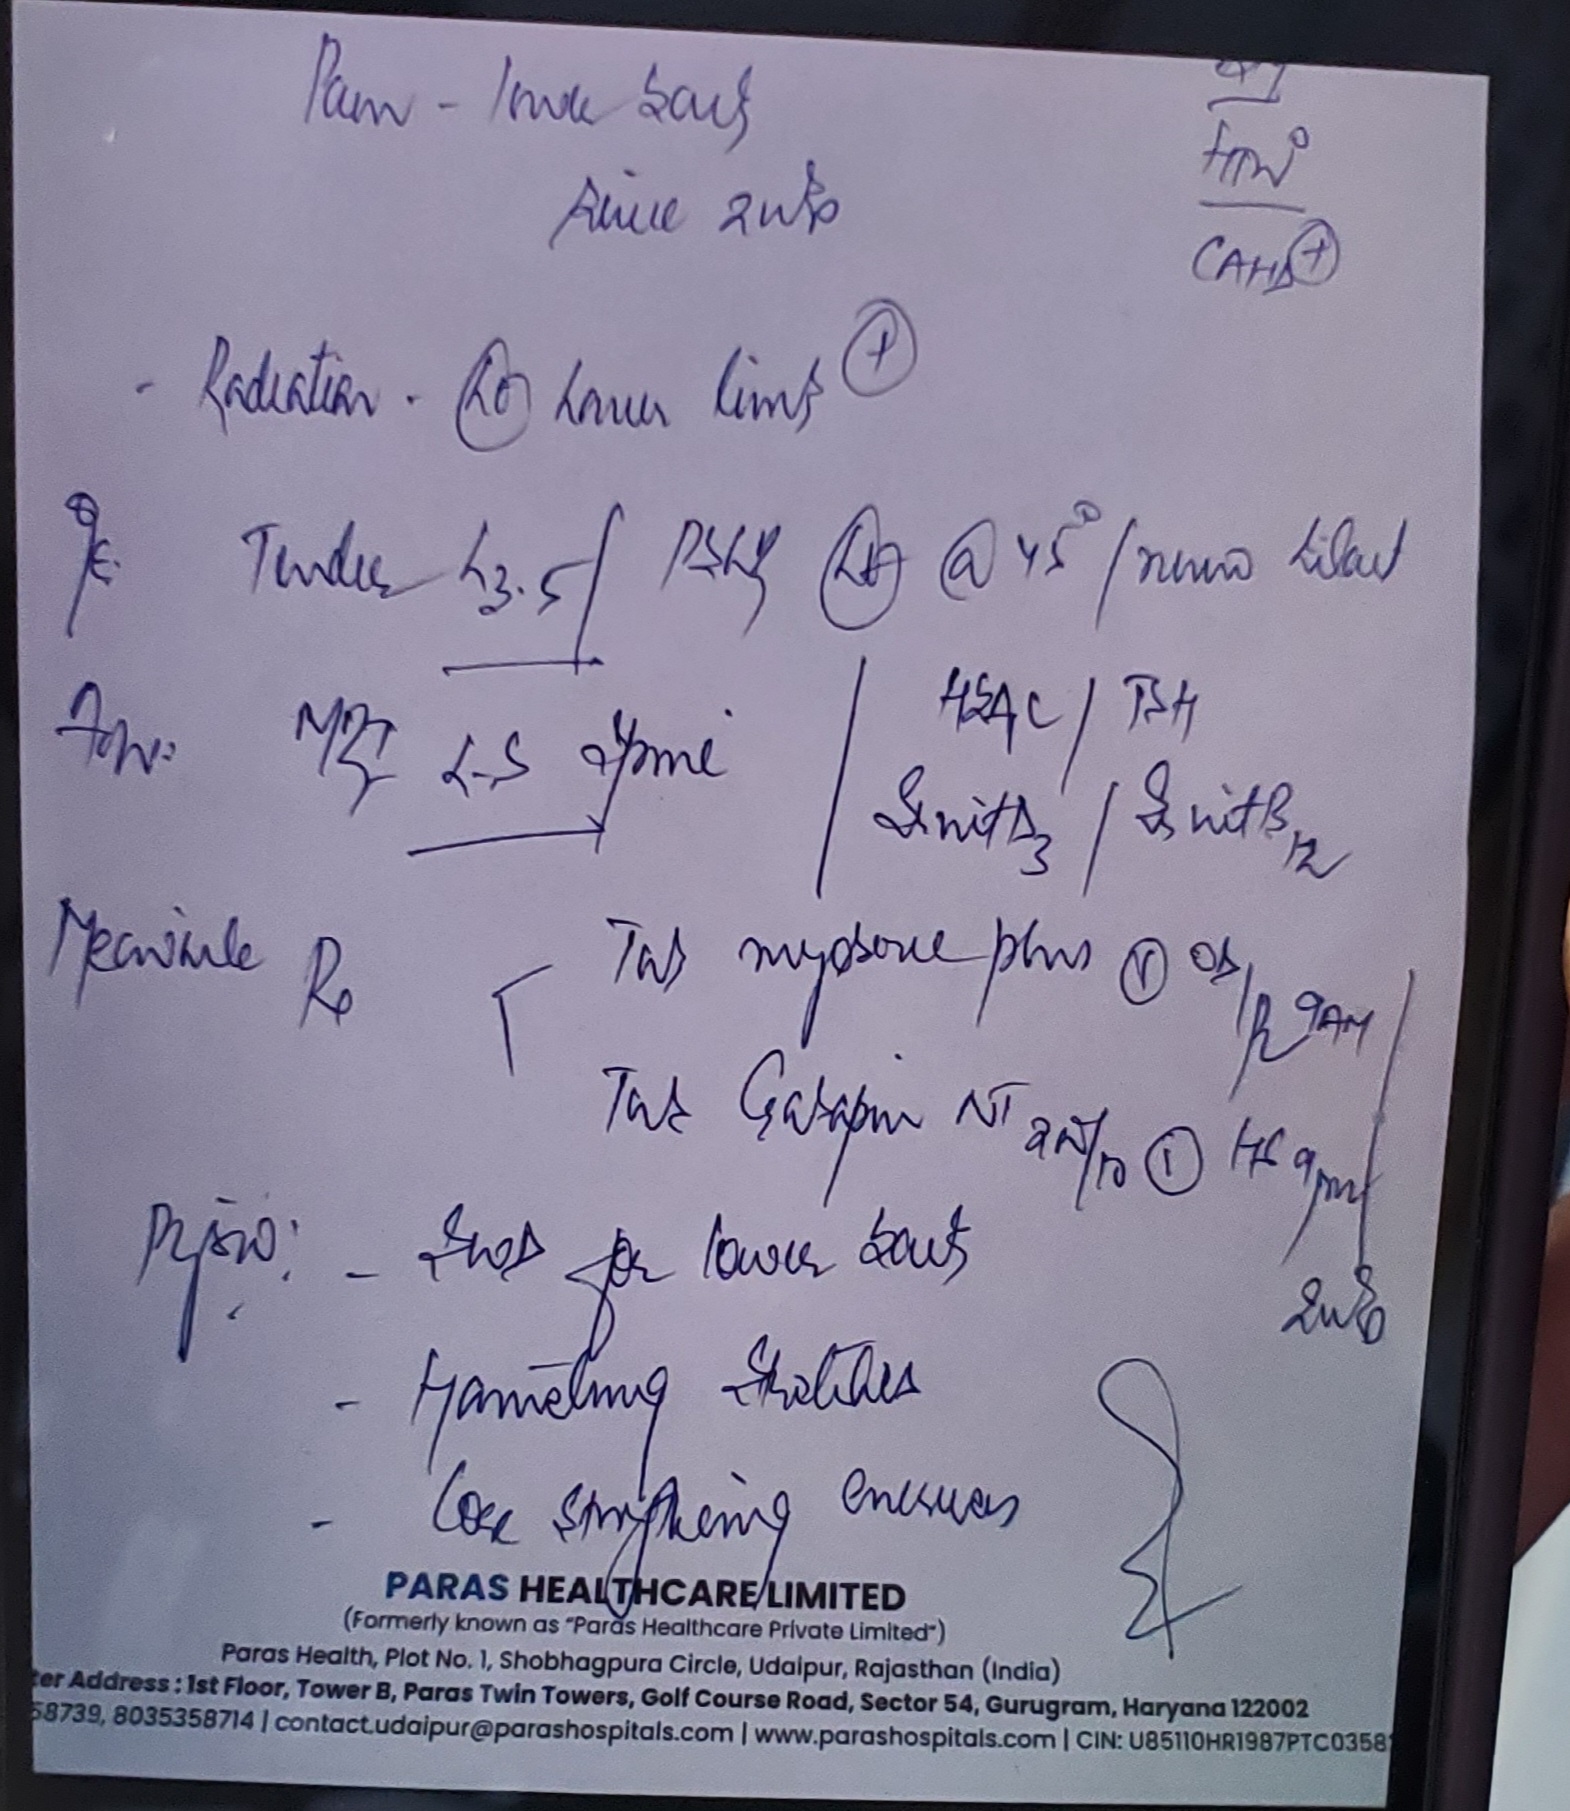 Pain - lower back
since 2 wks
HTN°
CAHD⊕
- Radiation - Lt lower limb ⊕
O/E: Tender L3-5 / PSLR Lt @ 45° /
Inv: MRI L-S Spine
HbA1c / TSH
S. Vit D3 / S. Vit B12
Meanwhile Rx
Tab Myosone plus ① OD / 9AM
Tab Gabapin NT ① HS 9pm
2 wks
Physio: - SWD for lower back
- Hamstring Stretches
- Core strengthening exercises
PARAS HEALTHCARE LIMITED
(Formerly known as "Paras Healthcare Private Limited")
Paras Health, Plot No. 1, Shobhagpura Circle, Udaipur, Rajasthan (India)
ter Address : 1st Floor, Tower B, Paras Twin Towers, Golf Course Road, Sector 54, Gurugram, Haryana 122002
58739, 8035358714 | contact.udaipur@parashospitals.com | www.parashospitals.com | CIN: U85110HR1987PTC0358